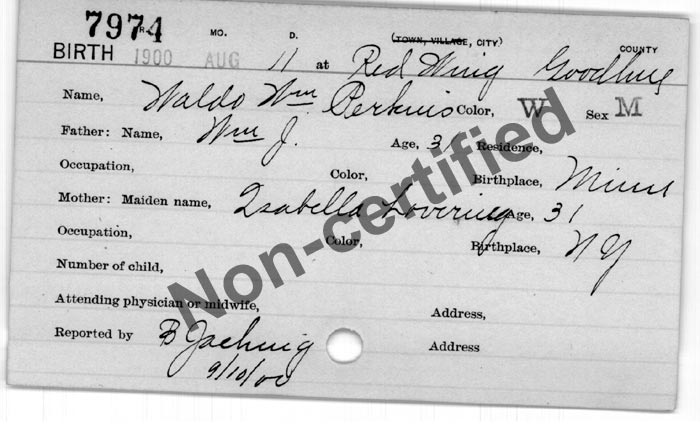 7974
YR. MO. D. (TOWN, VILLAGE, CITY) COUNTY
BIRTH 1900 AUG 11 at Red Wing Goodhue
Name, Waldo Wm Perkins Color, W Sex M
Father: Name, Wm J. Age, 31 Residence,
Occupation, Color, Birthplace, Minn
Mother: Maiden name, Isabella Lovering Age, 31
Occupation, Color, Birthplace, NY
Number of child,
Attending physician or midwife, Address,
Reported by B Jaehnig Address
9/10/00
Non-certified